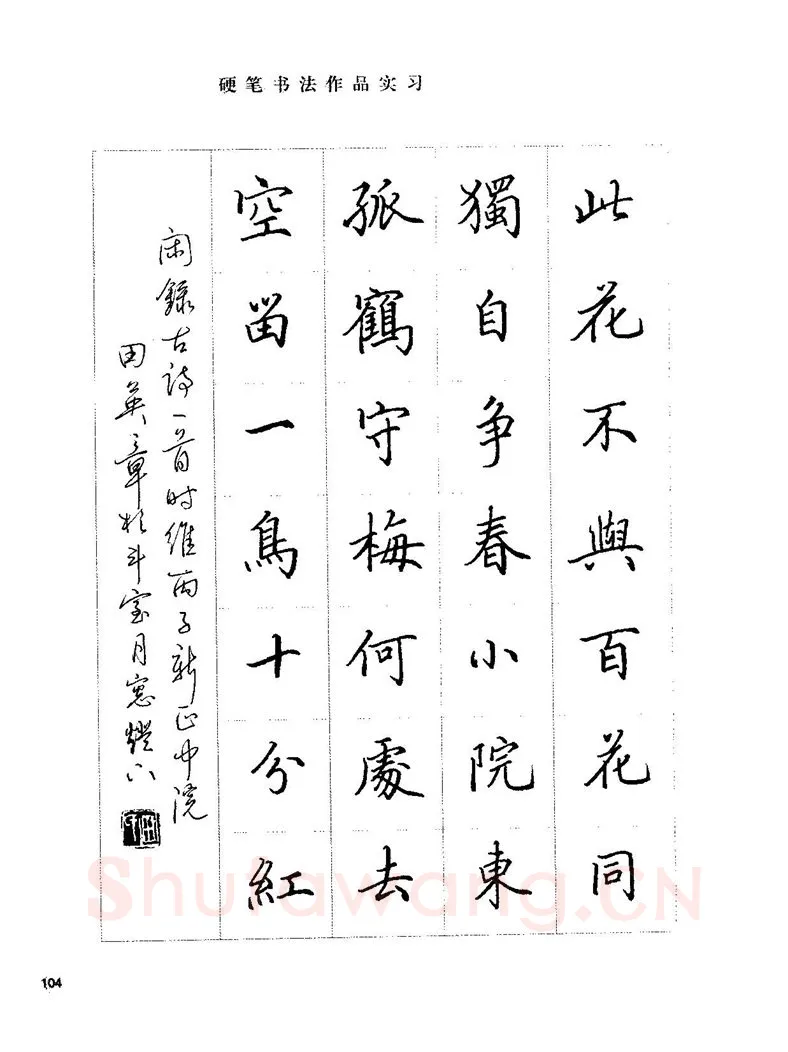 硬笔书法作品实习
此花不與百花同
獨自争春小院東
孤鶴守梅何處去
空留一鳥十分紅
闲録古诗一首时维丙子新正中浣
田英章於斗室月窓燈下
Shufawang.CN
104